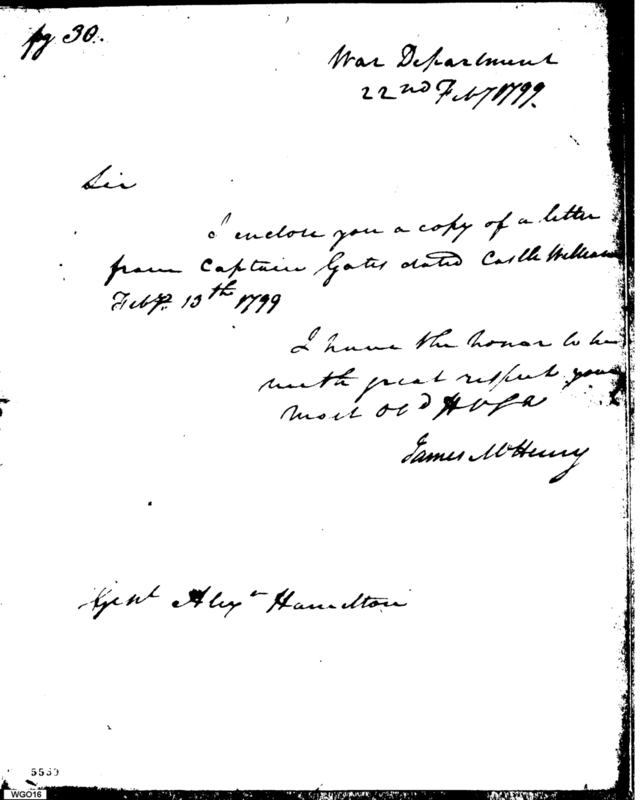 pg 30.
War Department
22nd Feby 1799.
Sir
I enclose you a copy of a letter
from Captain Gates dated Castle William
Feby. 13th 1799
I have the honor to be
with great respect your
most Obd
James McHenry
Genl Alexr Hamilton
5550
WGO16